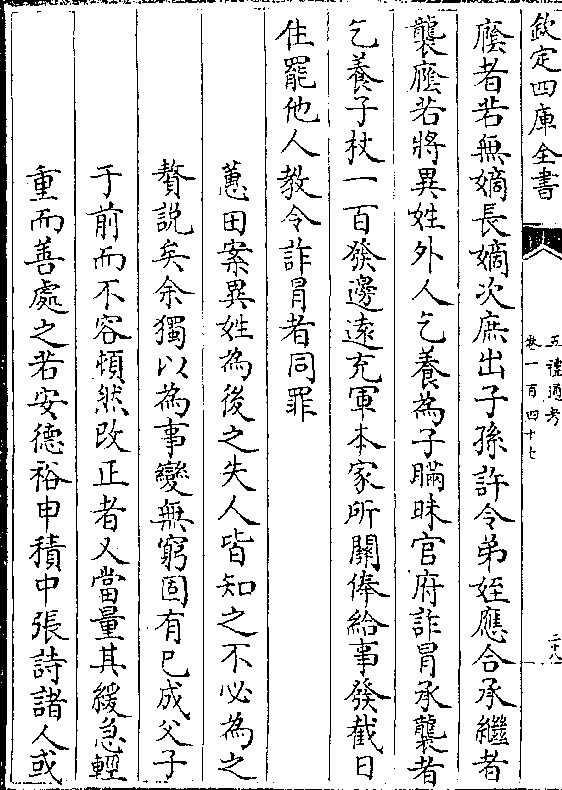 欽定四庫全書
五禮通考
卷一百四十七
二十八
廕者若無嫡長嫡次庶出子孫許令弟姪應合承繼者
襲廕若將異姓外人乞養為子瞞昧官府詐冒承襲者
乞養子杖一百發邊遠充軍本家所關俸給事發截日
住罷他人教令詐冒者同罪
蕙田案異姓為後之失人皆知之不必為之
贅說矣余獨以為事變無窮固有已成父子
于前而不容頓然改正者又當量其緩急輕
重而善處之若安德裕申積中張詩諸人或